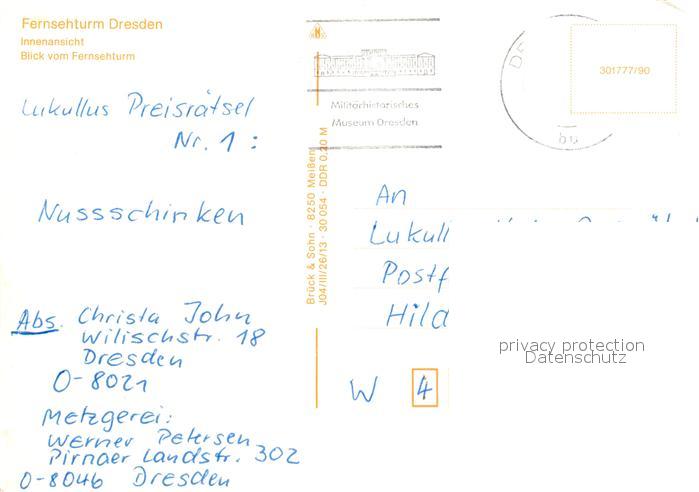 Fernsehturm Dresden
Innenansicht
Blick vom Fernsehturm
Lukullus Preisrätsel
Nr. 1 :
Nussschinken
Abs. Christa John
Wilischstr. 18
Dresden
O-8021
Metzgerei:
Werner Petersen
Pirnaer Landstr. 302
O-8046 Dresden
Brück & Sohn · 8250 Meißen
J04/III/26/13 · 30 054 · DDR 0,20 M
Militärhistorisches
Museum Dresden
301777/90
An
Lukull
Postf
Hild
W 4
privacy protection
Datenschutz